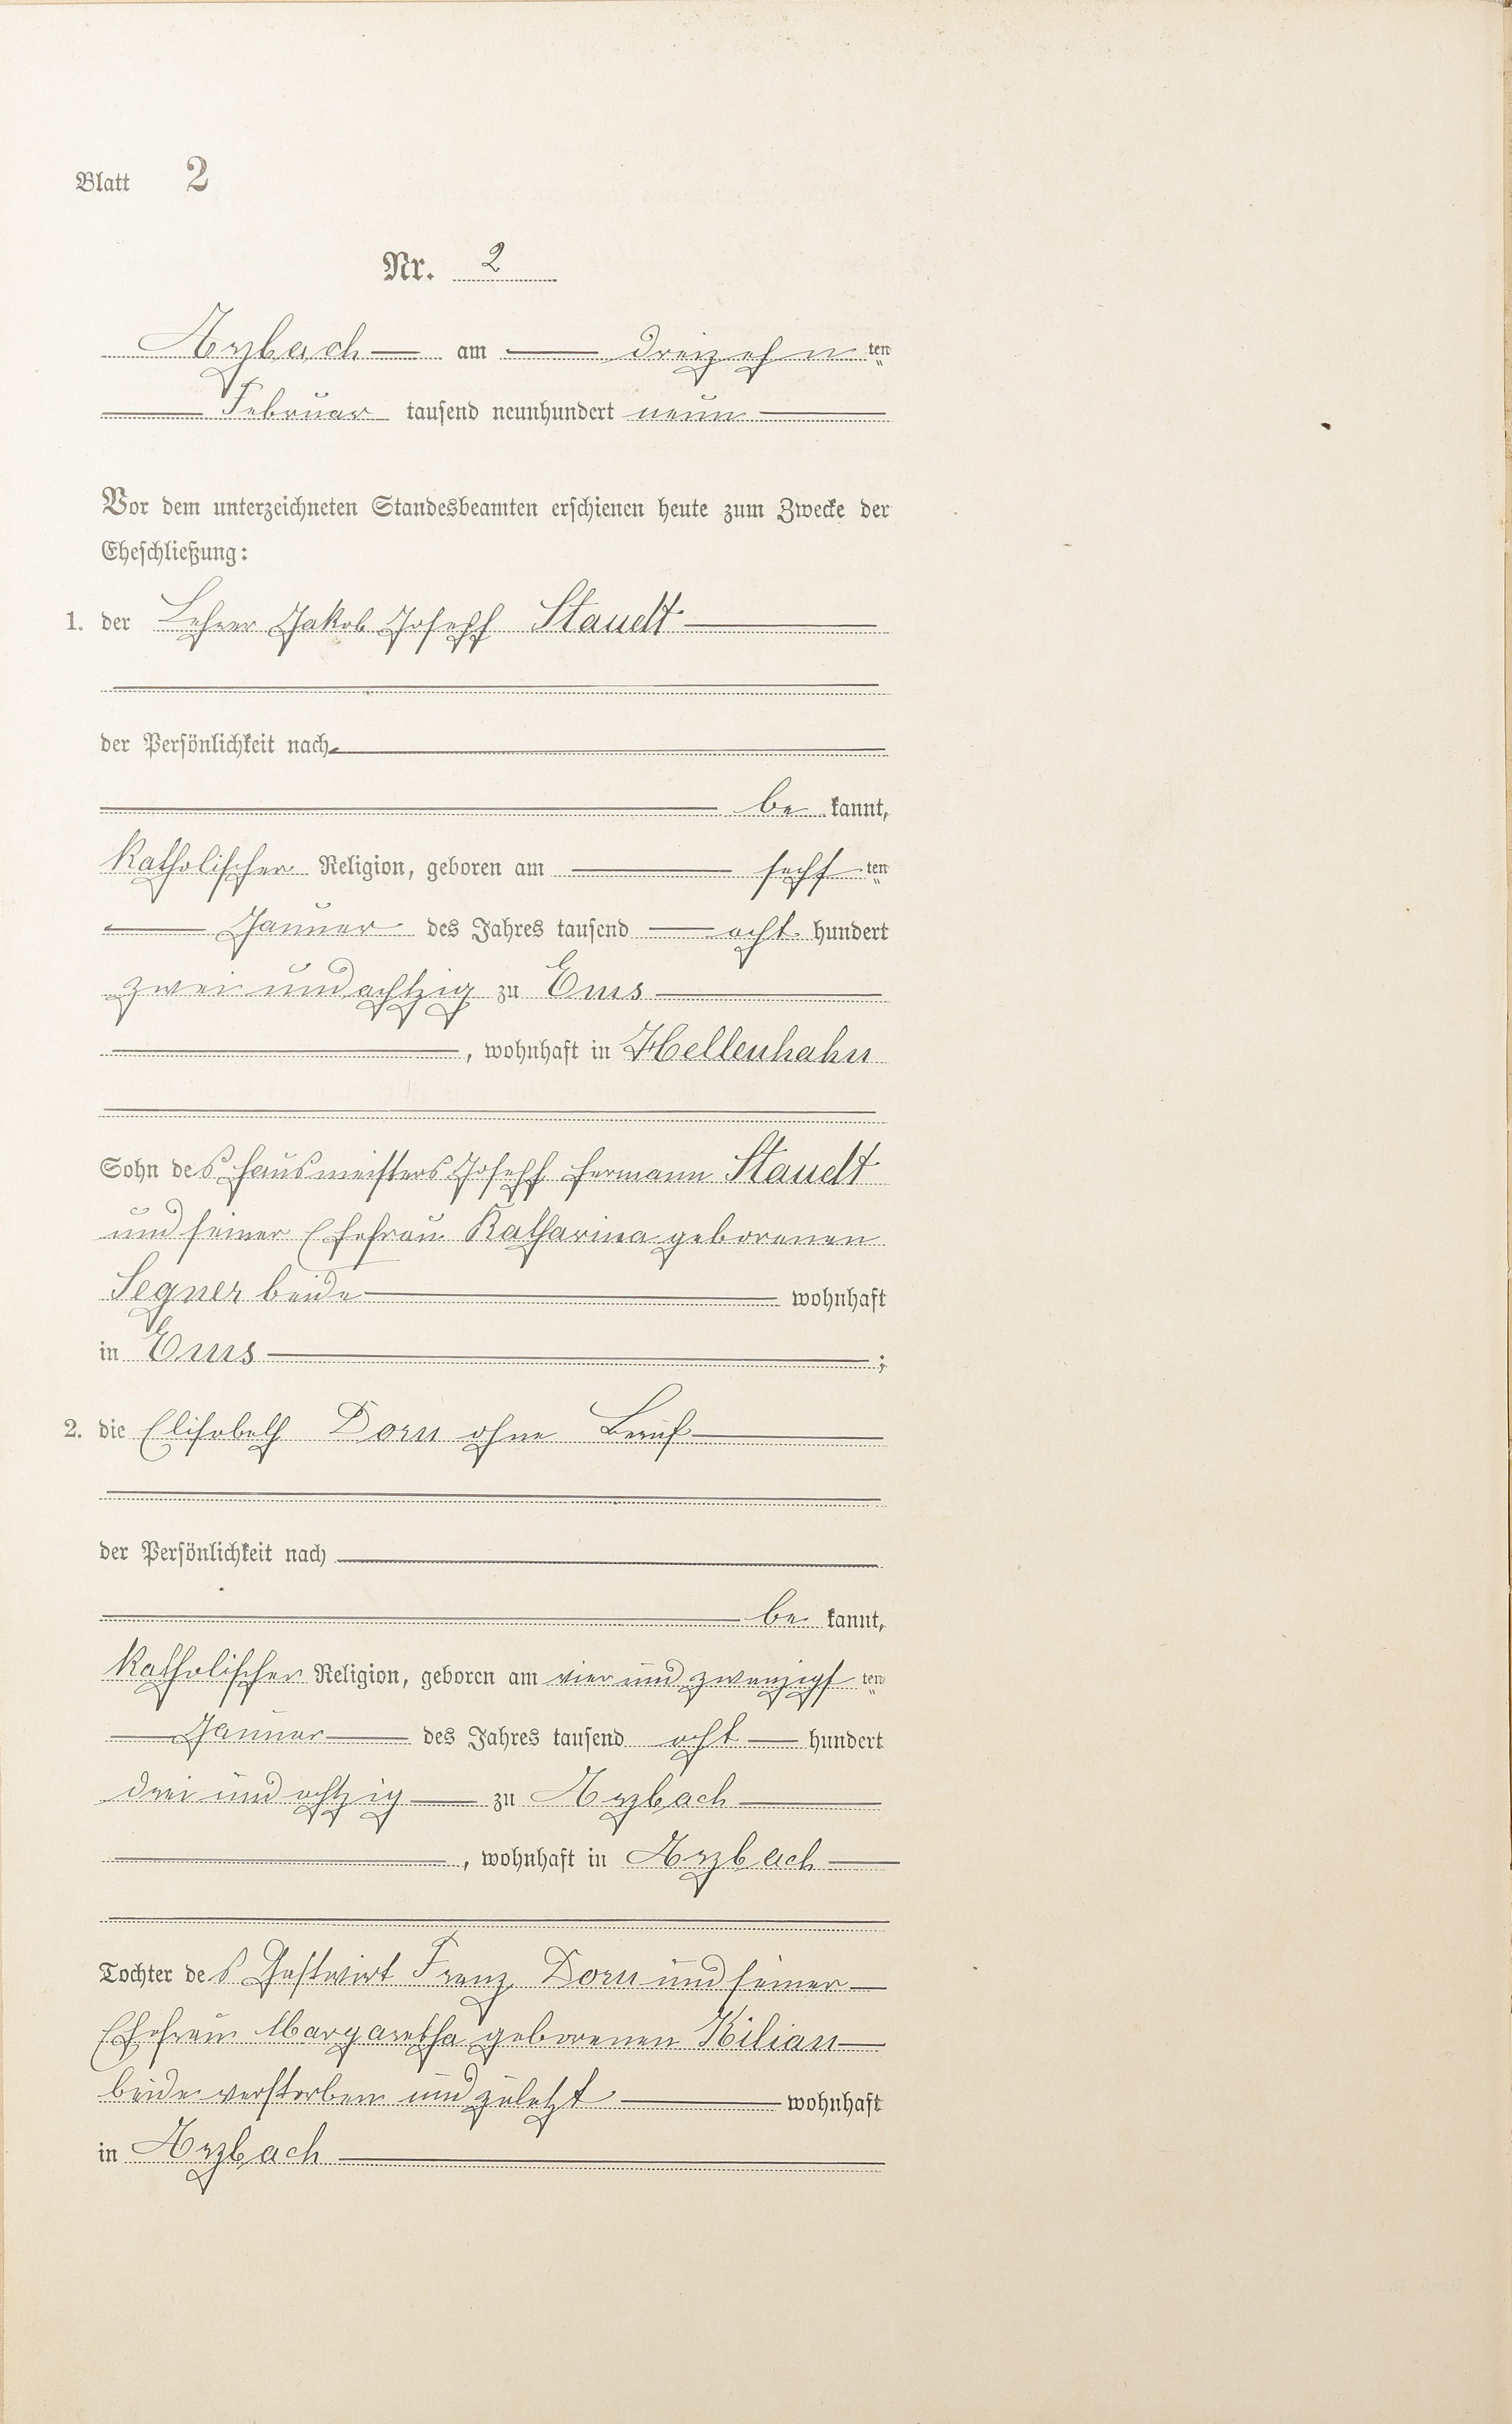 Blatt 2
Nr. 2
Arzbach am dreizehn ten
Februar tausend neunhundert neun
Vor dem unterzeichneten Standesbeamten erschienen heute zum Zwecke der
Eheschließung:
1. der Lehrer Jakob Joseph Staudt
der Persönlichkeit nach
be kannt,
katholischer Religion, geboren am sechs ten
Januar des Jahres tausend acht hundert
zwei und achtzig zu Ems
, wohnhaft in Hellenhahn
Sohn des Hausmeisters Joseph Hermann Staudt
und seiner Ehefrau Katharina geborenen
Segner beide wohnhaft
in Ems ;
2. die Elisabeth Dorn ohne Beruf
der Persönlichkeit nach
be kannt,
katholischer Religion, geboren am vier und zwanzigs ten
Januar des Jahres tausend acht hundert
drei und achtzig zu Arzbach
, wohnhaft in Arzbach
Tochter des Gastwirt Franz Dorn und seiner
Ehefrau Margaretha geborenen Kilian
beide verstorben und zuletzt wohnhaft
in Arzbach